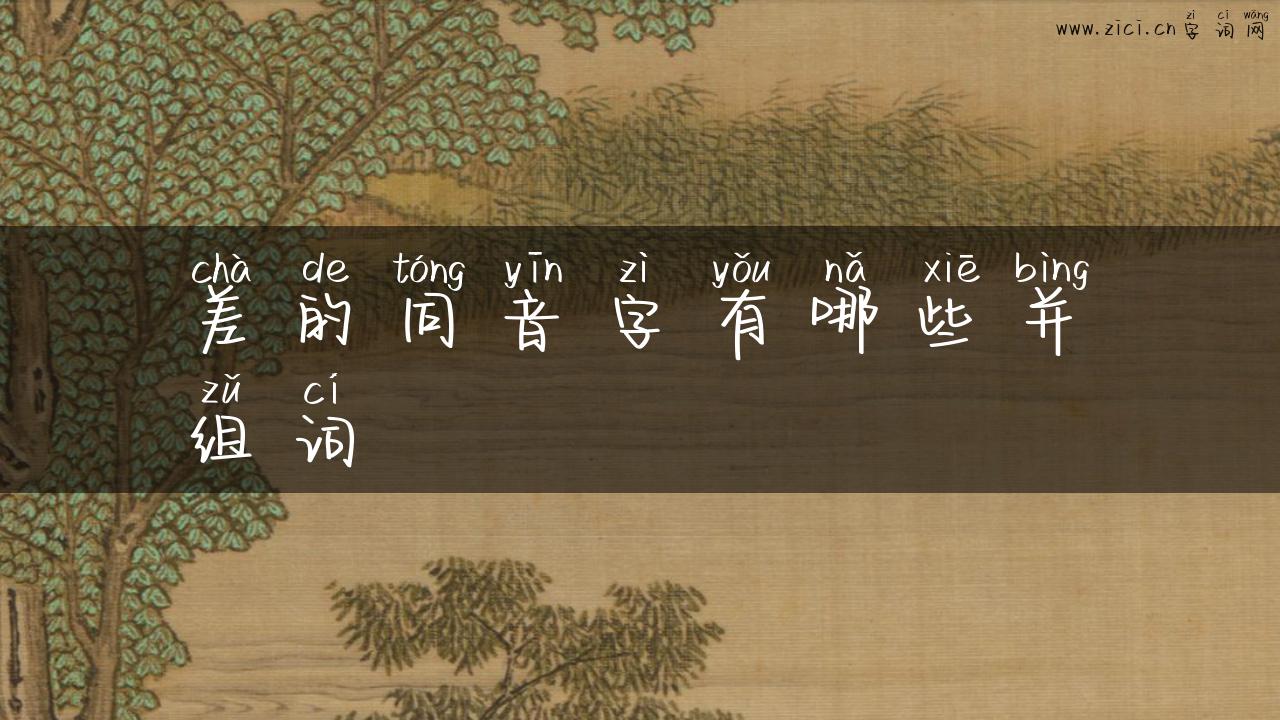 zì cí wǎng
www.zici.cn字词网
chà de tóng yīn zì yǒu nǎ xiē bìng
差的同音字有哪些并
zǔ cí
组词